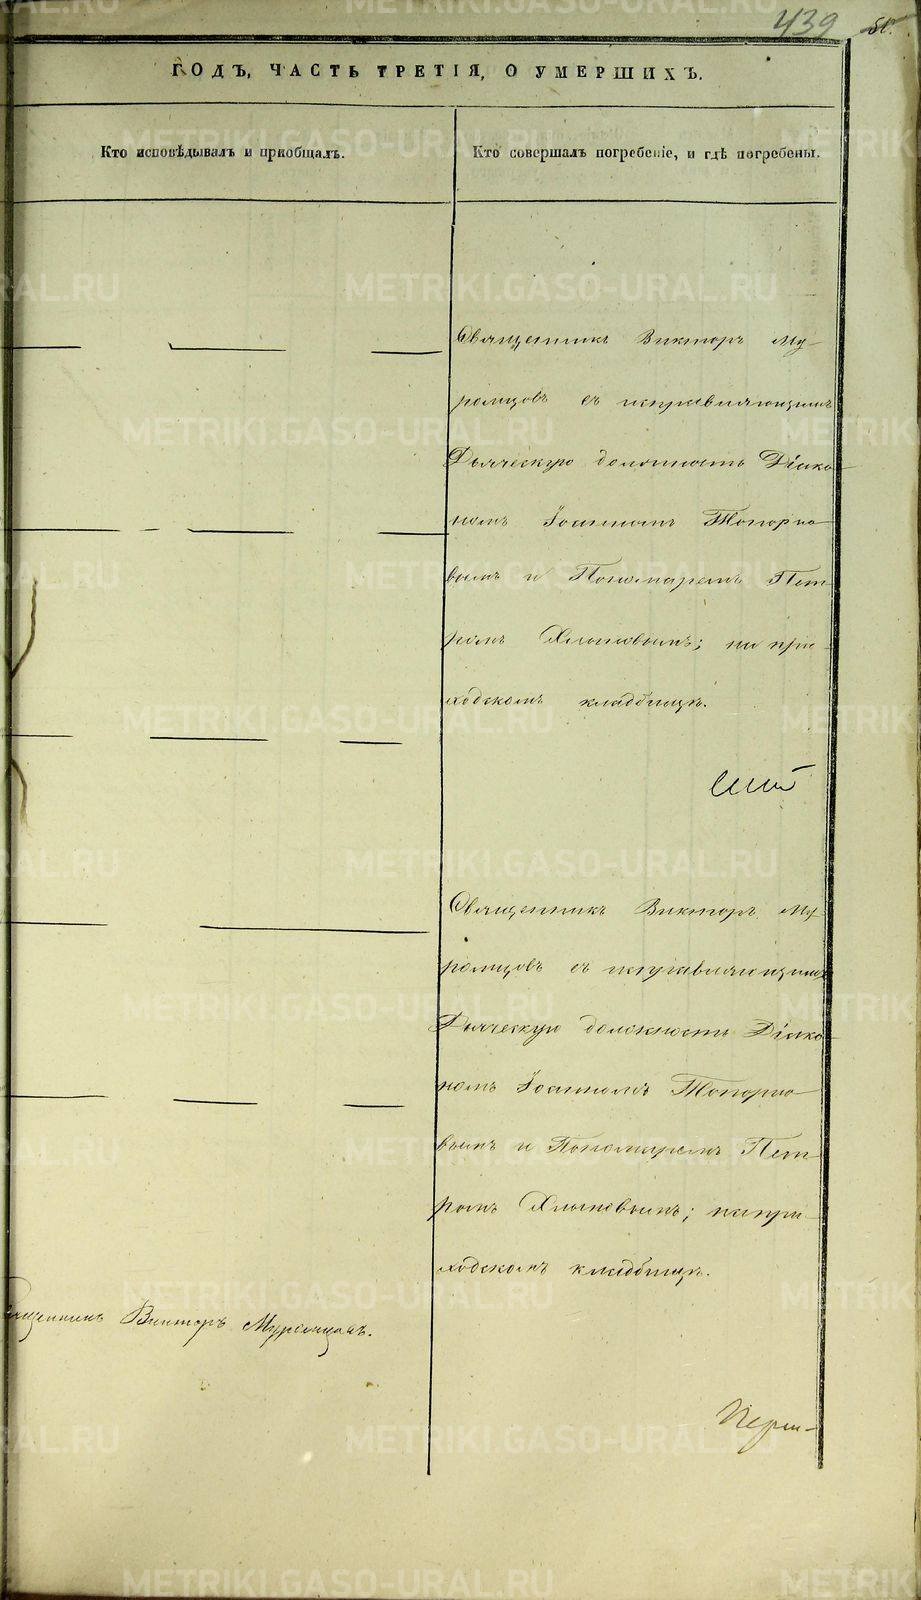 439
ГОДЪ, ЧАСТЬ ТРЕТІЯ, О УМЕРШИХЪ.
Кто исповѣдывалъ и пріобщалъ.
Кто совершалъ погребеніе, и гдѣ погребены.
Священникъ Викторъ Му-
ромцовъ съ исправляющимъ
Дьяческую должность Діако-
номъ Іоанномъ Топорко-
вымъ и Пономаремъ Пет-
ромъ Хлыновымъ; на при-
ходскомъ кладбищѣ.
Священникъ Викторъ Му-
ромцовъ съ исправляющимъ
Дьяческую должность Діако-
номъ Іоанномъ Топорко-
вымъ и Пономаремъ Пет-
ромъ Хлыновымъ; на при-
ходскомъ кладбищѣ.
Священникъ Викторъ Муромцовъ.
METRIKI.GASO-URAL.RU